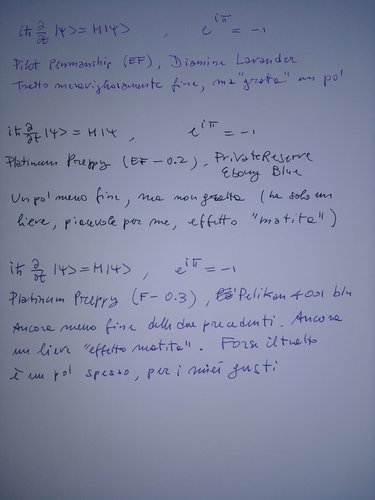 iħ ∂/∂t |ψ> = H|ψ> , e^iπ = -1
Pilot Penmanship (EF), Diamine Lavander
Tratto meravigliosamente fine, ma "gratta" un po'
iħ ∂/∂t |ψ> = H|ψ , e^iπ = -1
Platinum Preppy (EF - 0.2), Private Reserve
Ebony Blue
Un po' meno fine, ma non gratta (ha solo un
lieve, piacevole per me, effetto "matita")
iħ ∂/∂t |ψ> = H|ψ> , e^iπ = -1
Platinum Preppy (F - 0.3), Pelikan 4001 blu
Ancora meno fine delle due precedenti. Ancora
un lieve "effetto matita". Forse il tratto
è un po' spesso, per i miei gusti